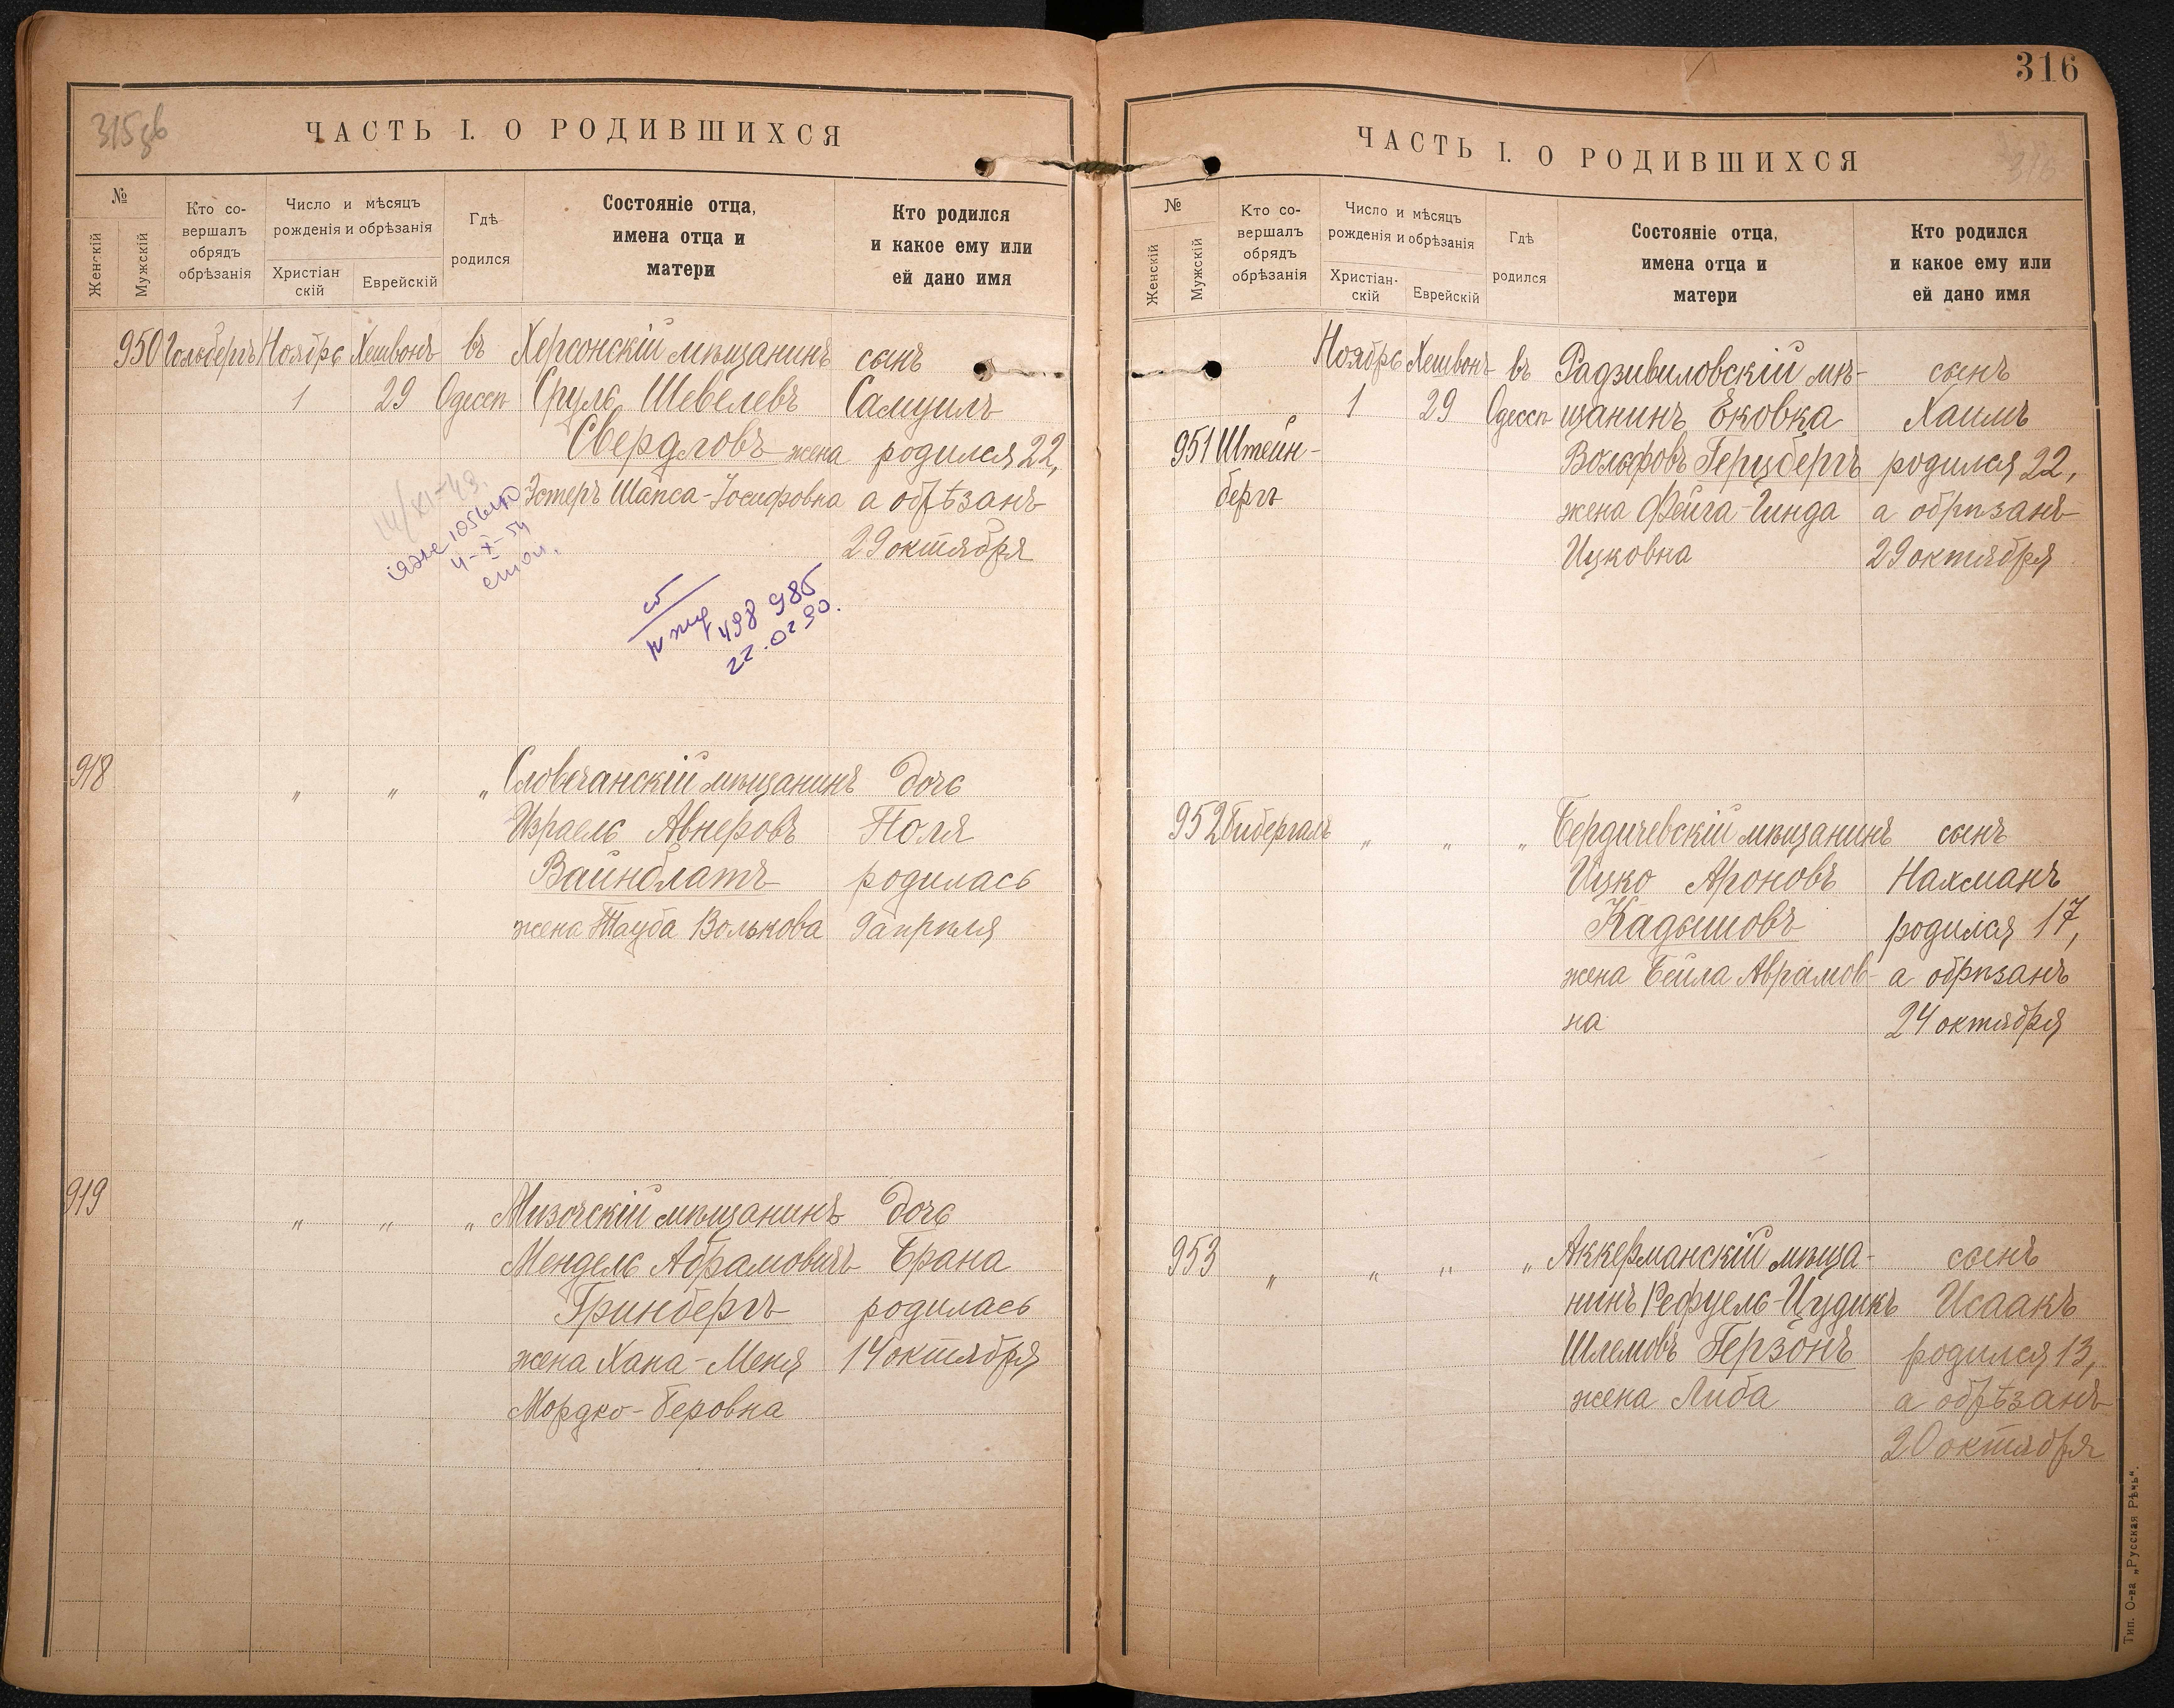 315об
ЧАСТЬ I. О РОДИВШИХСЯ
№
Женскій
Мужскій
Кто со-
вершалъ
обрядъ
обрѣзанія
Число и мѣсяцъ
рожденія и обрѣзанія
Христіан
скій
Еврейскій
Гдѣ
родился
Состояніе отца,
имена отца и
матери
Кто родился
и какое ему или
ей дано имя
950 Гольдбергъ Ноябрь Хешвонъ въ Херсонскій мѣщанинъ сынъ
1 29 Одессѣ Сруль Шевелевъ Самуилъ
Свердловъ жена родился 22,
Эстеръ Шапса-Іосифовна а обрѣзанъ
29 октября
14/XI-49.
4-X-54
498 985
22.02.90.
918 " " " Словечанскій мѣщанинъ дочь
Израель Авнеровъ Поля
Вайнблатъ родилась
жена Тауба Волькова 9 апрѣля
919 " " " Мизочскій мѣщанинъ дочь
Мендель Абрамовичъ Брана
Гринбергъ родилась
жена Хана-Меня 14 октября
Мордко-Беровна
316
ЧАСТЬ I. О РОДИВШИХСЯ
316
№
Женскій
Мужскій
Кто со-
вершалъ
обрядъ
обрѣзанія
Число и мѣсяцъ
рожденія и обрѣзанія
Христіан-
скій
Еврейскій
Гдѣ
родился
Состояніе отца,
имена отца и
матери
Кто родился
и какое ему или
ей дано имя
Ноябрь Хешвонъ въ Радзивиловскій мѣ- сынъ
1 29 Одессѣ щанинъ Ековка Хаимъ
951 Штейн- Вольфовъ Герцбергъ родился 22,
бергъ жена Фейга-Гинда а обрѣзанъ
Ицковна 29 октября
952 Бибергаль " " " Бердичевскій мѣщанинъ сынъ
Ицко Ароновъ Нахманъ
Кадышовъ родился 17,
жена Бейла Аврамов- а обрѣзанъ
на 24 октября
953 " " " " Аккерманскій мѣща- сынъ
нинъ Рефуель-Цудикъ Исаакъ
Шлемовъ Герзонъ родился 13,
жена Либа а обрѣзанъ
20 октября
Тип. О-ва „Русская Рѣчь".